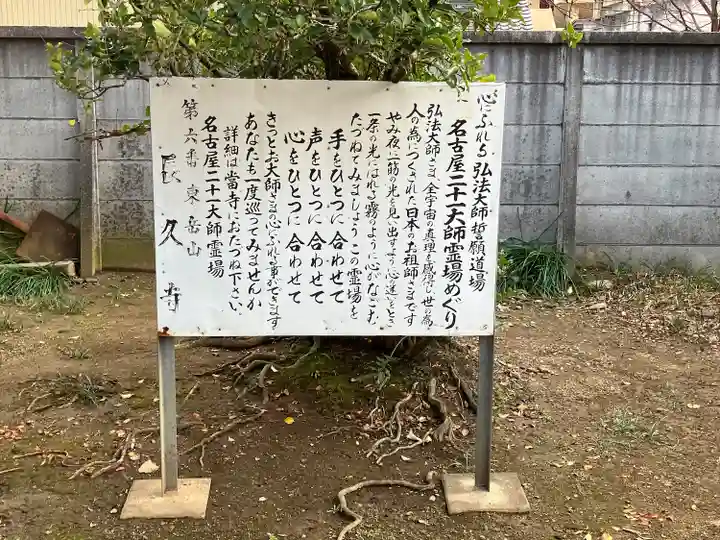 心にふれる 弘法大師 誓願道場
名古屋二十一大師霊場めぐり
弘法大師さまは、全宇宙の真理を感得し、世の為
人の為につくされた日本のお祖師さまです
やみ夜に一筋の光を見い出すよう心の迷いをとき
一条の光にはれる霧のように心がなごむ
たづねてみましょう この霊場を
手をひとつに合わせて
声をひとつに合わせて
心をひとつに合わせて
きっとお大師さまの心にふれる事ができます
あなたも一度巡ってみませんか
詳細は當寺におたづね下さい、
名古屋二十一大師霊場
第六番 東岳山
長久寺